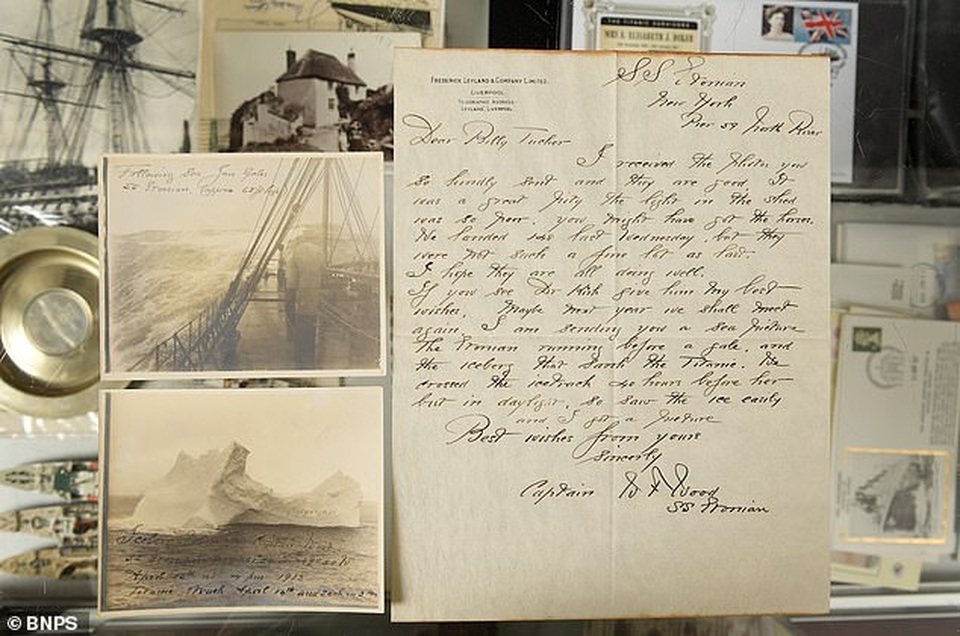 THE TITANIC SURVIVORS
FREDERICK LEYLAND & COMPANY LIMITED.
LIVERPOOL.
TELEGRAPHIC ADDRESS
LEYLAND, LIVERPOOL.
SS Etonian
New York
Pier 59 North River
Dear Billy Tucker
I received the photos you
so kindly sent and they are good. It
was a great pity the light in the shed
was so poor. you might have got the horses.
We landed 148 last Wednesday, but they
were not such a fine lot as last.
I hope they are all doing well.
If you see Dr Kirk give him my best
wishes. Maybe next year we shall meet
again. I am sending you a sea picture
The Etonian running before a gale. and
the iceberg that sank the Titanic. We
crossed the icetrack 40 hours before her
but in daylight, so saw the ice easily
and I got a picture
Best wishes from yours
sincerely
Captain W F Wood
SS Etonian
Following Sea
SS Etonian
Iceberg
April
Titanic struck April 14th and sank in 3
© BNPS